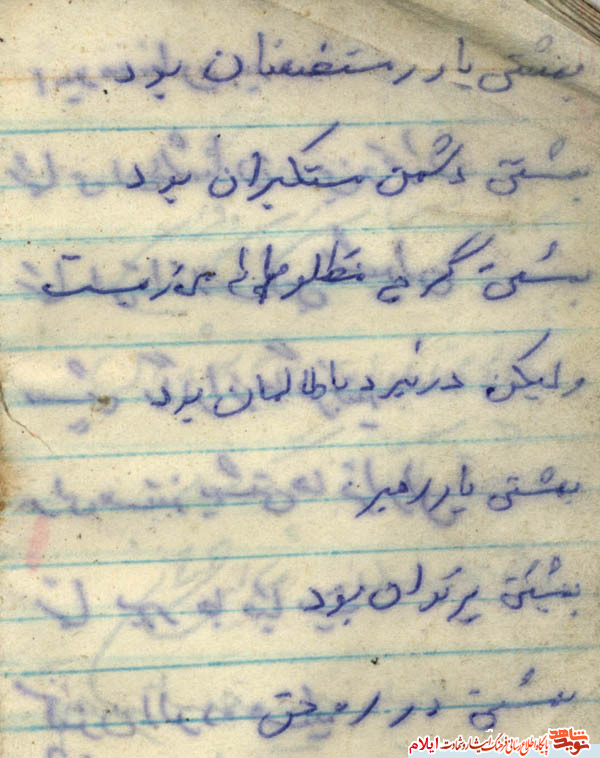 بهشتی یار مستضعفان بود
بهشتی دشمن مستکبران بود
بهشتی گرچه مظلومانه می زیست
ولیکن در نبرد با ظالمان بود
بهشتی یار رهبر
بهشتی پرتوان بود
بهشتی در ره حق
نوید شاهد پایگاه اطلاع رسانی فرهنگ ایثار و شهادت ایلام